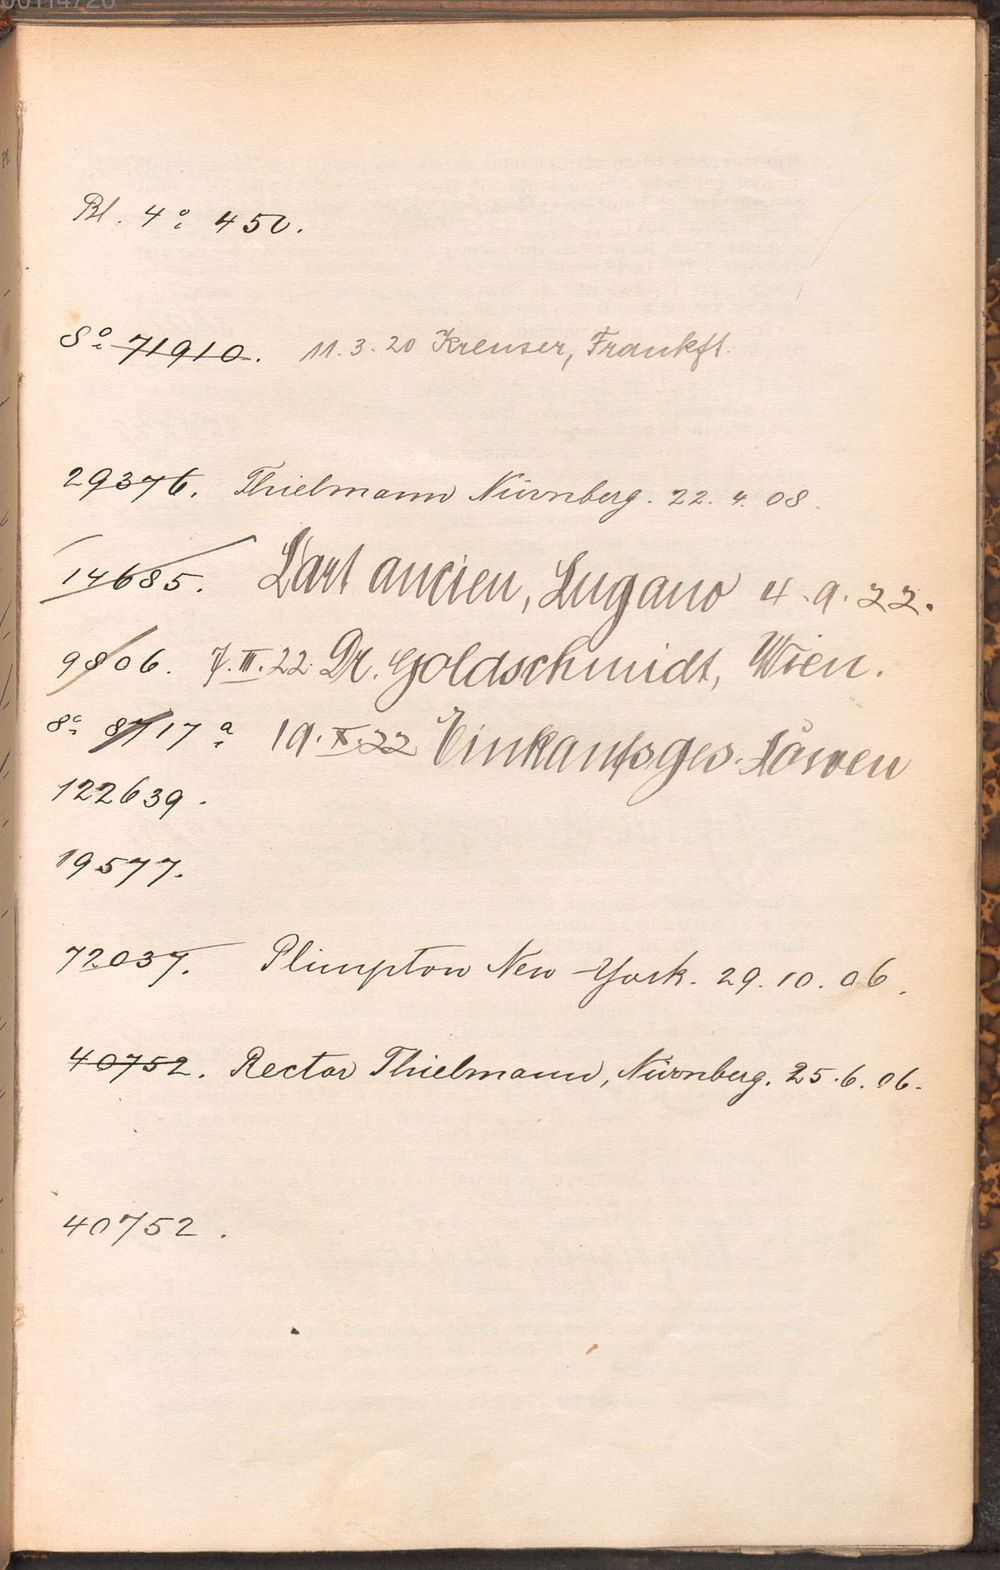 Bl. 4° 450.
8° 71910. 11.3.20 Kreuser, Frankft.
29376. Thielmann Nürnberg. 22. 4. 08.
14685. L'art ancien, Lugano 4.9.22.
9806. 7.III.22. Dr. Goldschmidt, Wien.
8° 8717 a 19.X.22 Einkaufsges. Löwen
122639.
19577.
72037. Plimpton New-York. 29. 10. 06.
40752. Rector Thielmann, Nürnberg. 25.6.06.
40752.